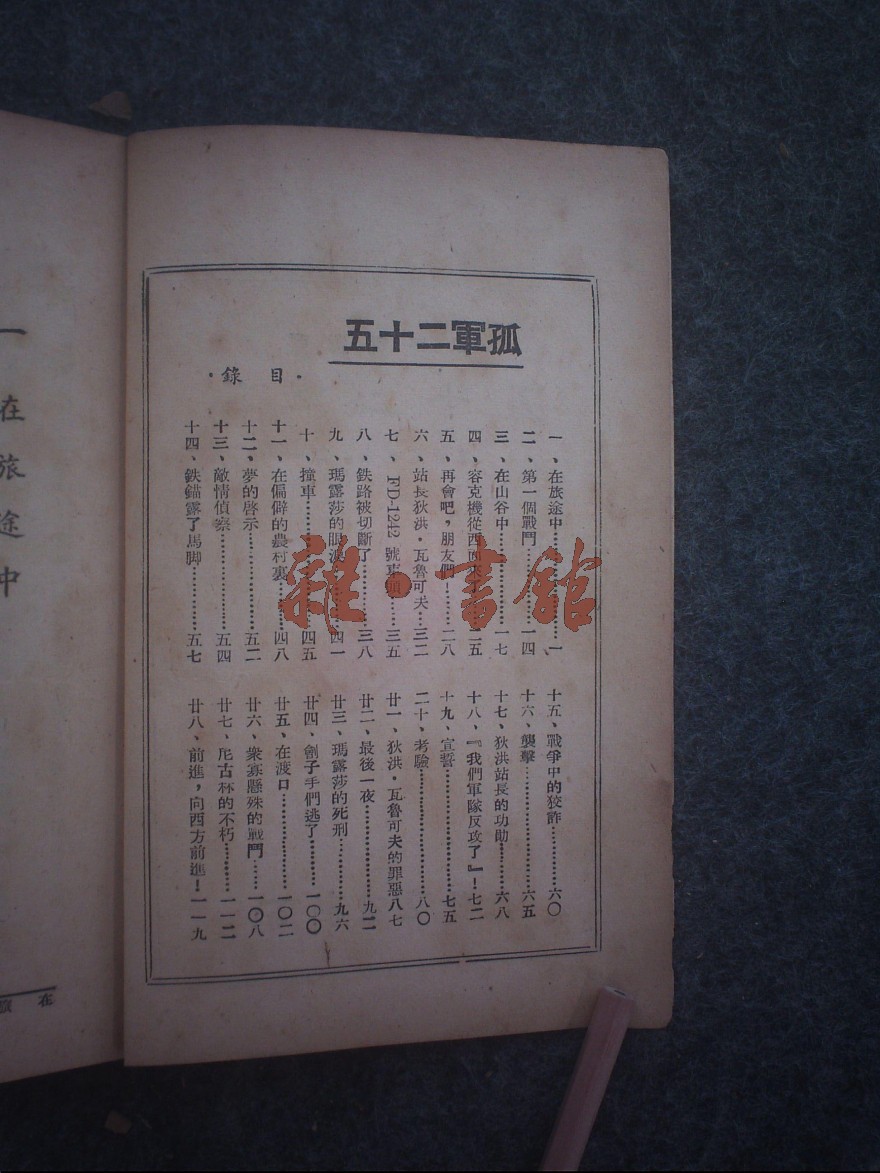 孤軍二十五
·目錄·
一、在旅途中……一
二、第一個戰鬥……一四
三、在山谷中……一七
四、容克機從西面……二五
五、再會吧，朋友們！……二八
六、站長狄洪·瓦魯可夫…三二
七、FD-1242 號車頭……三五
八、鉄路被切斷了……三八
九、瑪露莎的眼淚……四一
十、撞車……四五
十一、在偏僻的農村裏…四八
十二、夢的啓示……五二
十三、敵情偵察……五四
十四、鉄錨露了馬脚……五七
十五、戰爭中的狡詐……六〇
十六、襲擊……六五
十七、狄洪站長的功勛……六八
十八、『我們軍隊反攻了』！七二
十九、宣誓……七五
二十、考驗……八〇
廿一、狄洪·瓦魯可夫的罪惡八七
廿二、最後一夜……九二
廿三、瑪露莎的死刑……九六
廿四、劊子手們逃了……一〇〇
廿五、在渡口……一〇二
廿六、衆寡懸殊的戰鬥……一〇八
廿七、古林的不朽……一一二
廿八、前進，向西方前進！一一九
一 在旅途中
在旅
雜·書館